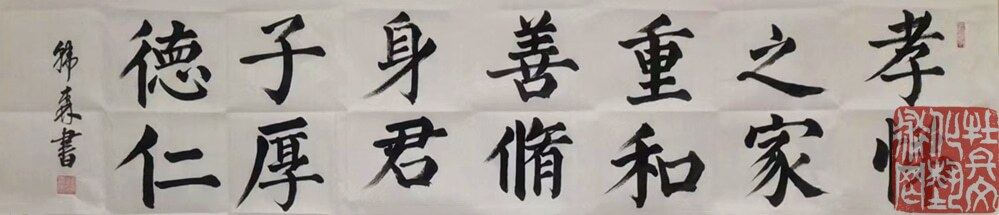 孝
之家
重和
善脩
身君
子厚
徳仁
韩森書